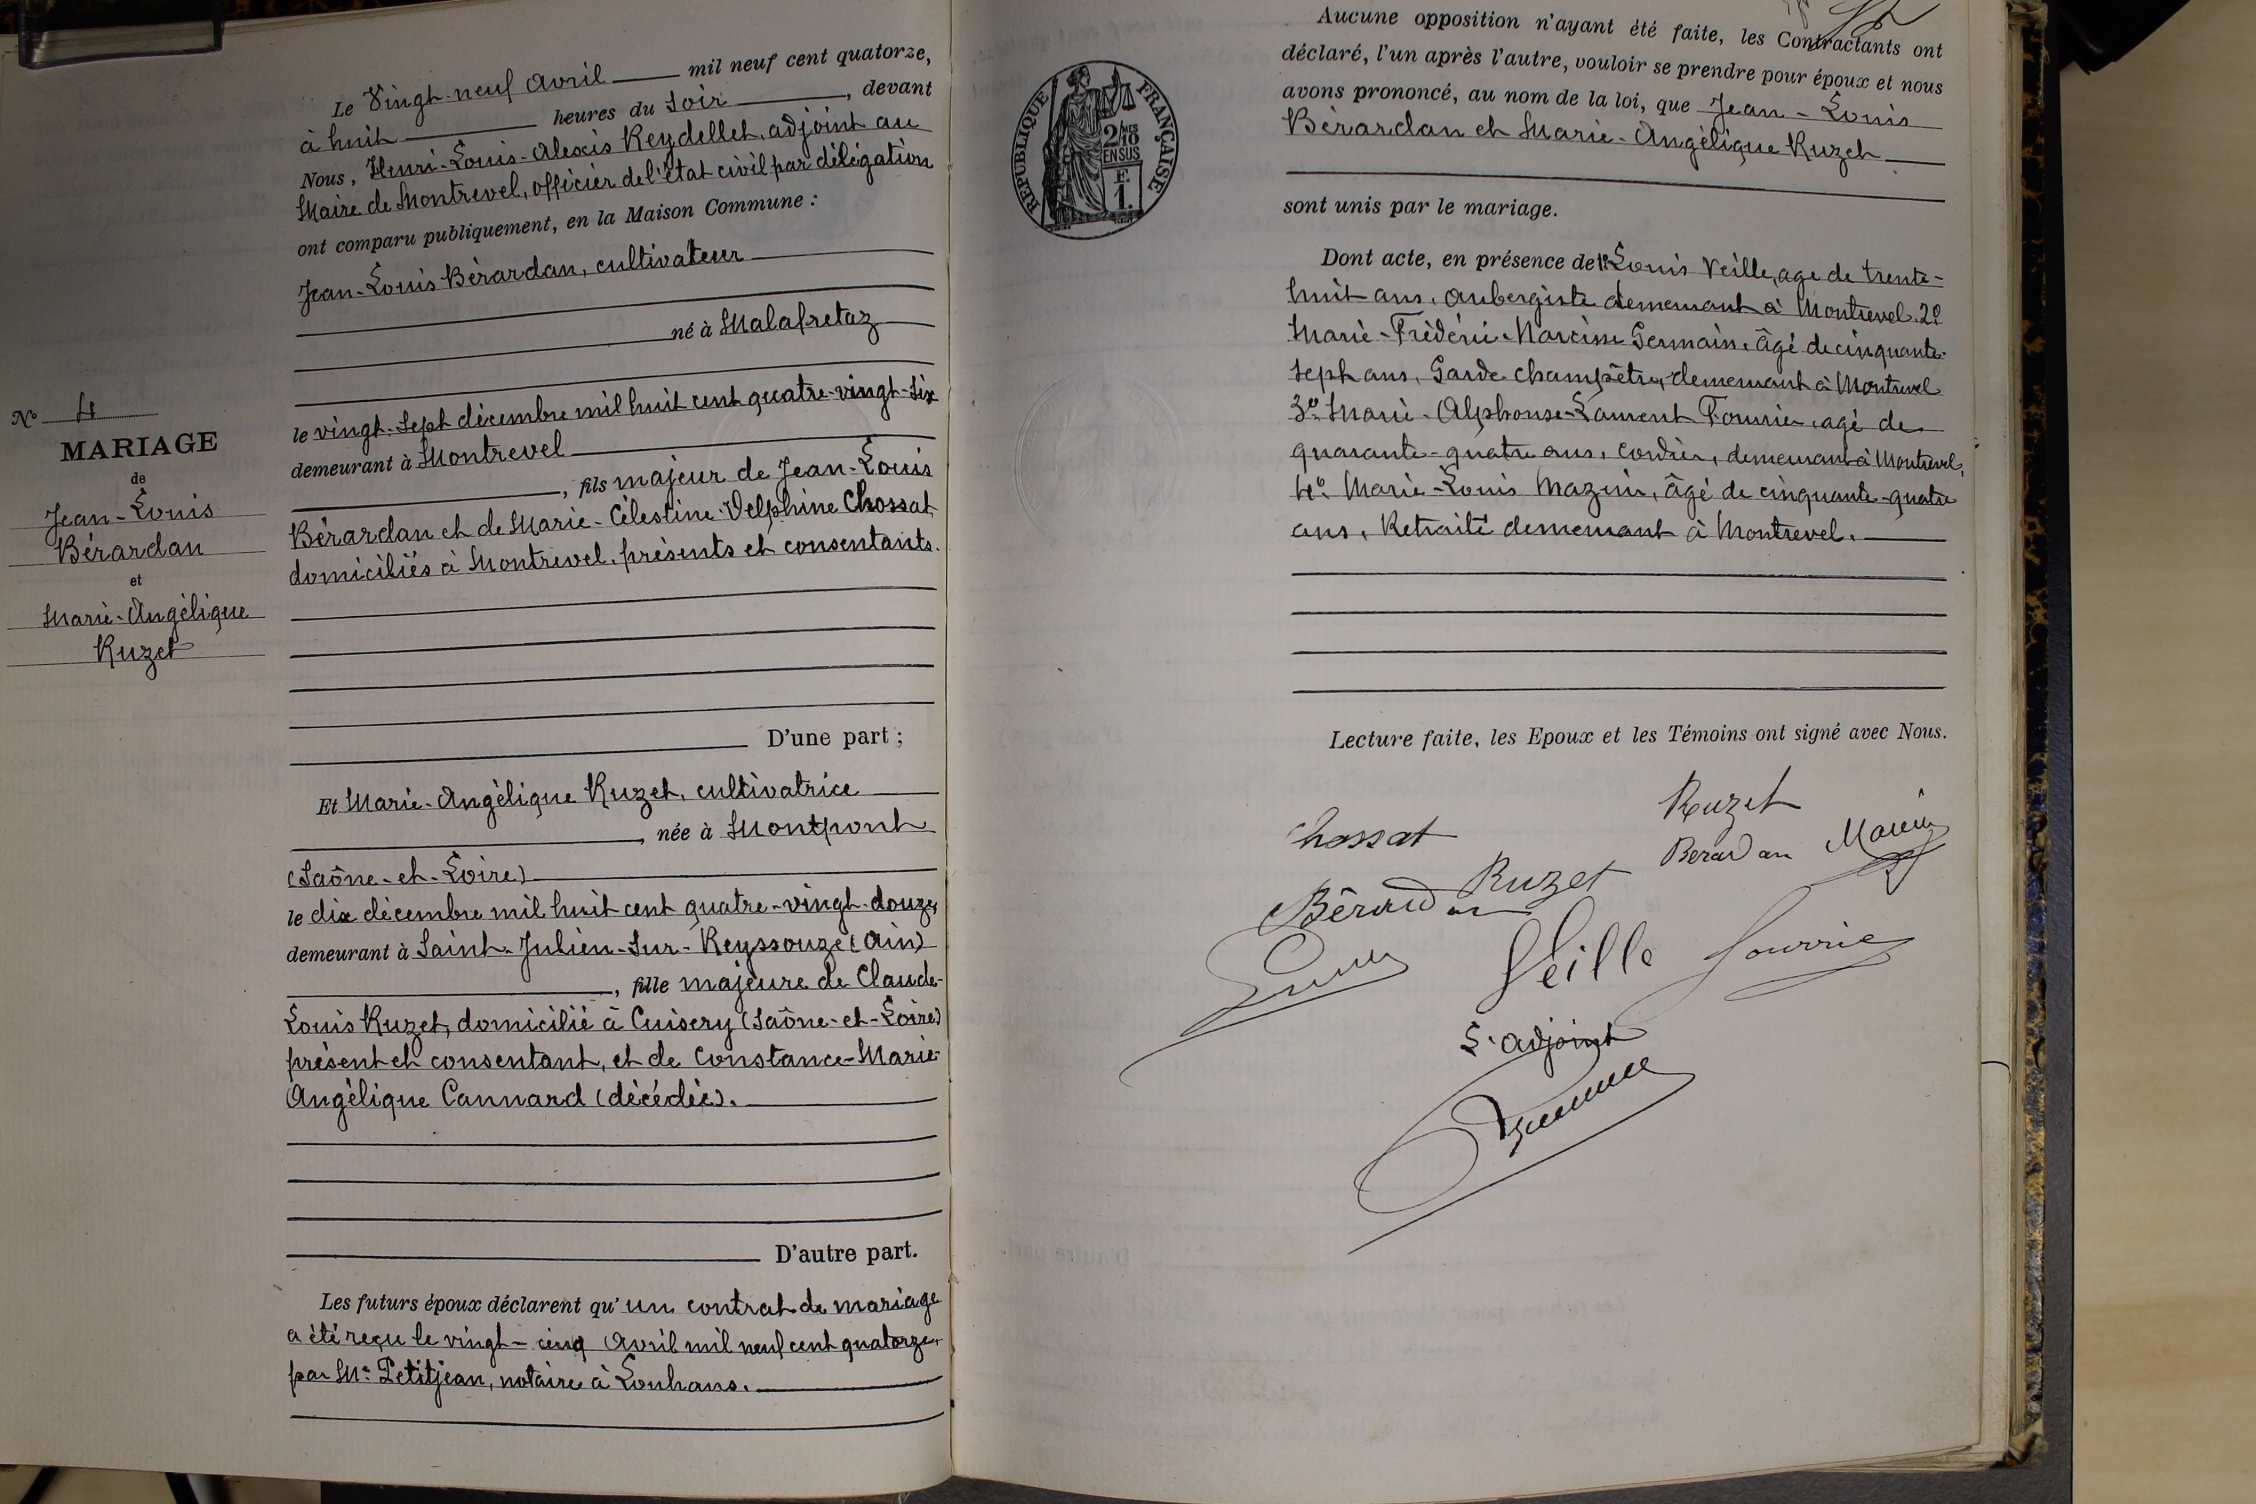 Le Vingt-neuf avril mil neuf cent quatorze,
à huit heures du soir, devant
Nous, Henri-Louis-Alexis Reydellet, adjoint au
Maire de Montrevel, officier de l'état civil par délégation
ont comparu publiquement, en la Maison Commune :
Jean-Louis Bérardan, cultivateur
né à Malafretaz
le vingt-sept décembre mil huit cent quatre-vingt-six
demeurant à Montrevel
, fils majeur de Jean-Louis
Bérardan et de Marie-Célestine-Delphine Chossat,
domiciliés à Montrevel, présents et consentants.
D'une part ;
Et Marie-Angélique Ruzet, cultivatrice
, née à Montpont
(Saône-et-Loire)
le dix décembre mil huit cent quatre-vingt-douze,
demeurant à Saint-Julien-sur-Reyssouze (Ain)
, fille majeure de Claude-
Louis Ruzet, domicilié à Cuisery (Saône-et-Loire)
présent et consentant, et de Constance-Marie-
Angélique Cannard (décédée).
D'autre part.
Les futurs époux déclarent qu'un contrat de mariage
a été reçu le vingt-cinq Avril mil neuf cent quatorze,
par Me Petitjean, notaire à Louhans.
No 4
MARIAGE
de
Jean-Louis
Bérardan
et
Marie-Angélique
Ruzet
Aucune opposition n'ayant été faite, les Contractants ont
déclaré, l'un après l'autre, vouloir se prendre pour époux et nous
avons prononcé, au nom de la loi, que Jean-Louis
Bérardan et Marie-Angélique Ruzet
sont unis par le mariage.
RÉPUBLIQUE FRANÇAISE
2/10
EN SUS
F.
1.
Dont acte, en présence de 1º Louis Veille, age de trente-
huit ans, aubergiste demeurant à Montrevel. 2º
Marie-Frédéric-Narcisse Germain, âgé de cinquante-
sept ans, Garde champêtre, demeurant à Montrevel
3º Marie-Alphonse-Laurent Fourrier, agé de
quarante-quatre ans, cordier, demeurant à Montrevel,
4º Marie-Louis Mazuir, âgé de cinquante-quatre
ans, Retraité demeurant à Montrevel.
Lecture faite, les Epoux et les Témoins ont signé avec Nous.
Ruzet
Chossat
Berardan
Ruzet
Bérardan
Veille
Fourrier
L'adjoint